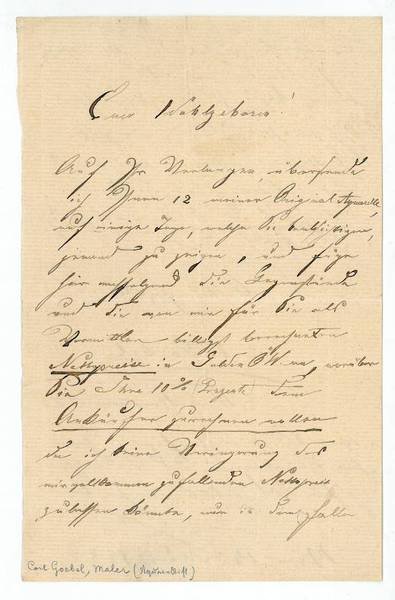 Euer Wohlgeboren!
Auf Ihr Verlangen, übersende
ich Ihnen 12 meiner Original Aquarelle,
auf einige Tage, welche Sie beabsichtigen,
jemand zu zeigen, und füge
hier nachfolgend die Gegenstände
und die von mir für Sie als
billigst berechneten
Nettopreise in Gulden ÖW an, worüber
Sie Ihre 10% (Prozente) dem
Ankäufer zurechnen wollen
da ich keine Verringerung des
mir zufallenden Nettopreis
zulassen könnte, nun im
Carl Goebel, Maler (Aquarellist.)